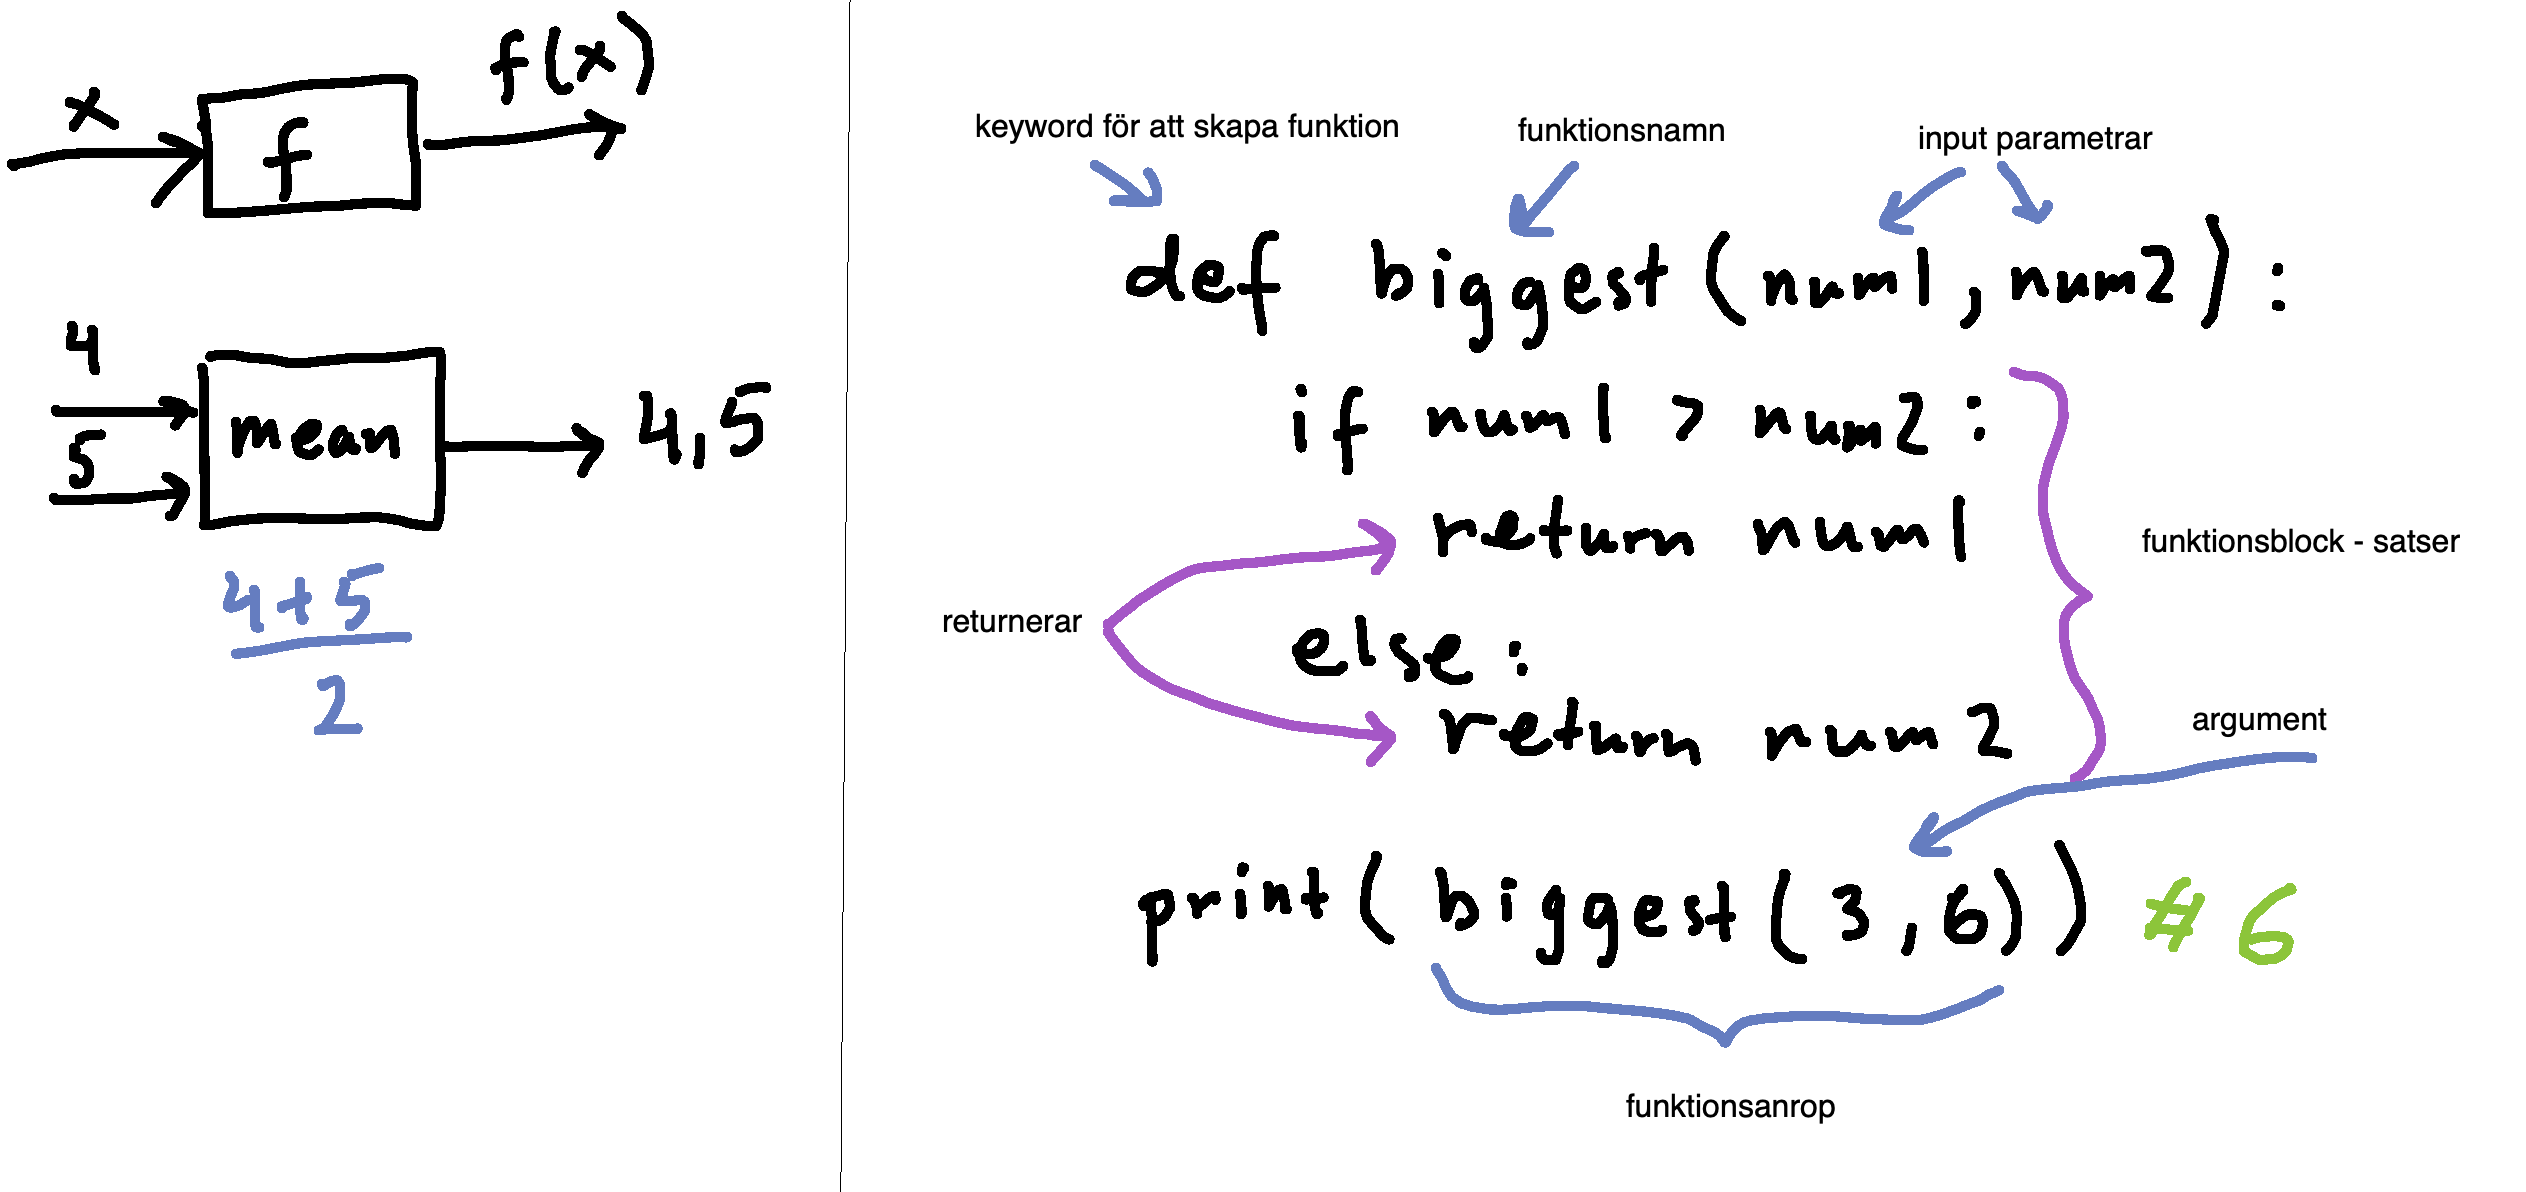 x
f
f(x)
4
5
mean
4,5
4+5
2
keyword för att skapa funktion
funktionsnamn
input parametrar
def biggest(num1, num2):
if num1 > num2:
return num1
funktionsblock - satser
returnerar
else:
return num2
argument
print(biggest(3,6)) # 6
funktionsanrop